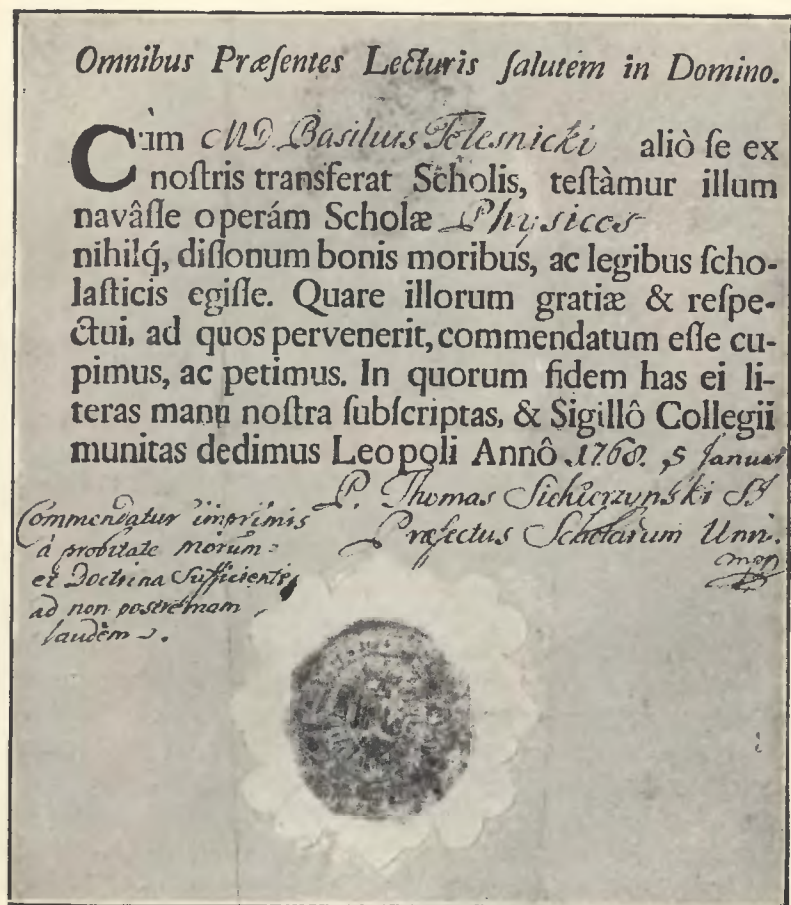 Omnibus Præſentes Lecturis ſalutem in Domino.
Cùm MD Basilius Telesnicki aliò ſe ex
noſtris transferat Scholis, teſtàmur illum
navâſſe operám Scholæ Physices
nihilq́, diſſonum bonis moribus, ac legibus ſcho-
laſticis egiſſe. Quare illorum gratiæ & reſpe-
ctui, ad quos pervenerit, commendatum eſſe cu-
pimus, ac petimus. In quorum fidem has ei li-
teras manu noſtra ſubſcriptas, & Sigillô Collegii
munitas dedimus Leopoli Annô 1768. 5 Januar
P. Thomas SJ
Præfectus Scholarum Univ.
mpp
Commendatur imprimis
à probitate morum
et Doctrina Sufficiente,
ad non postremam
laudem.